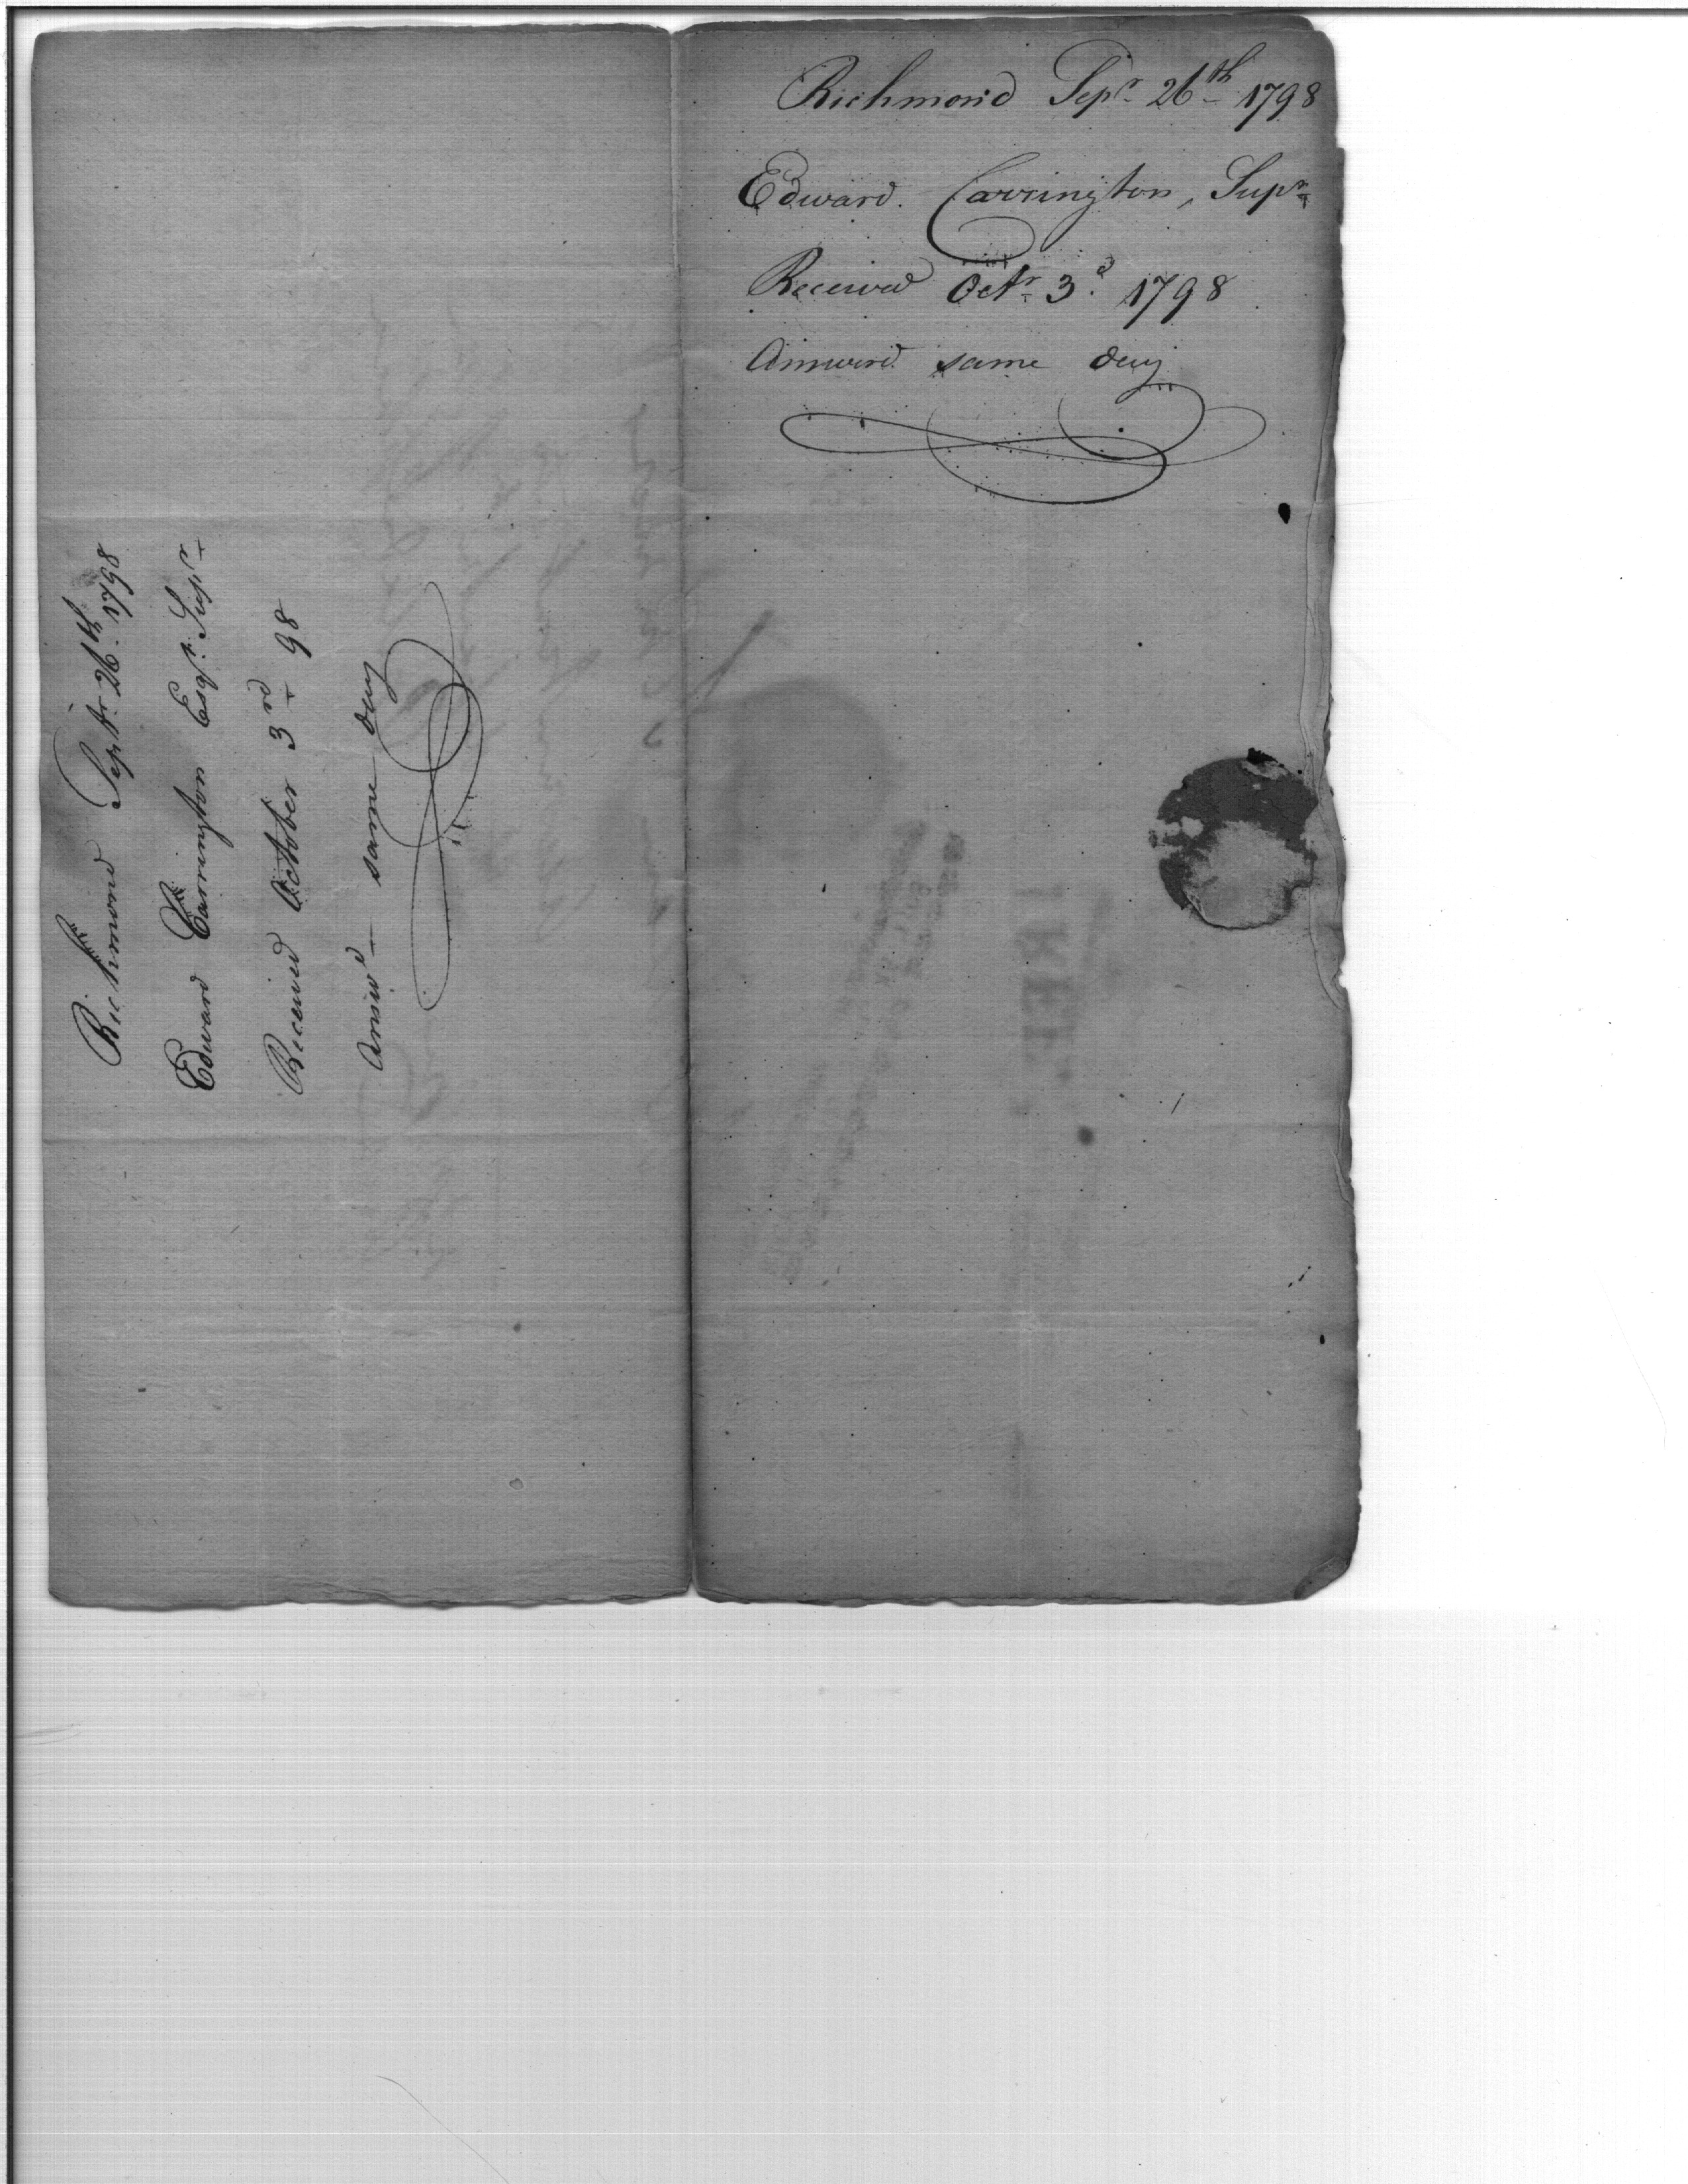 Richmond Sepr. 26th 1798
Edward Carrington, Supr.
Received Octr. 3d. 1798
Answerd. same day
Richmond Septr. 26th. 1798
Edward Carrington Esqr. Supr.
Received October 3rd 98
Answd. same day
FREE